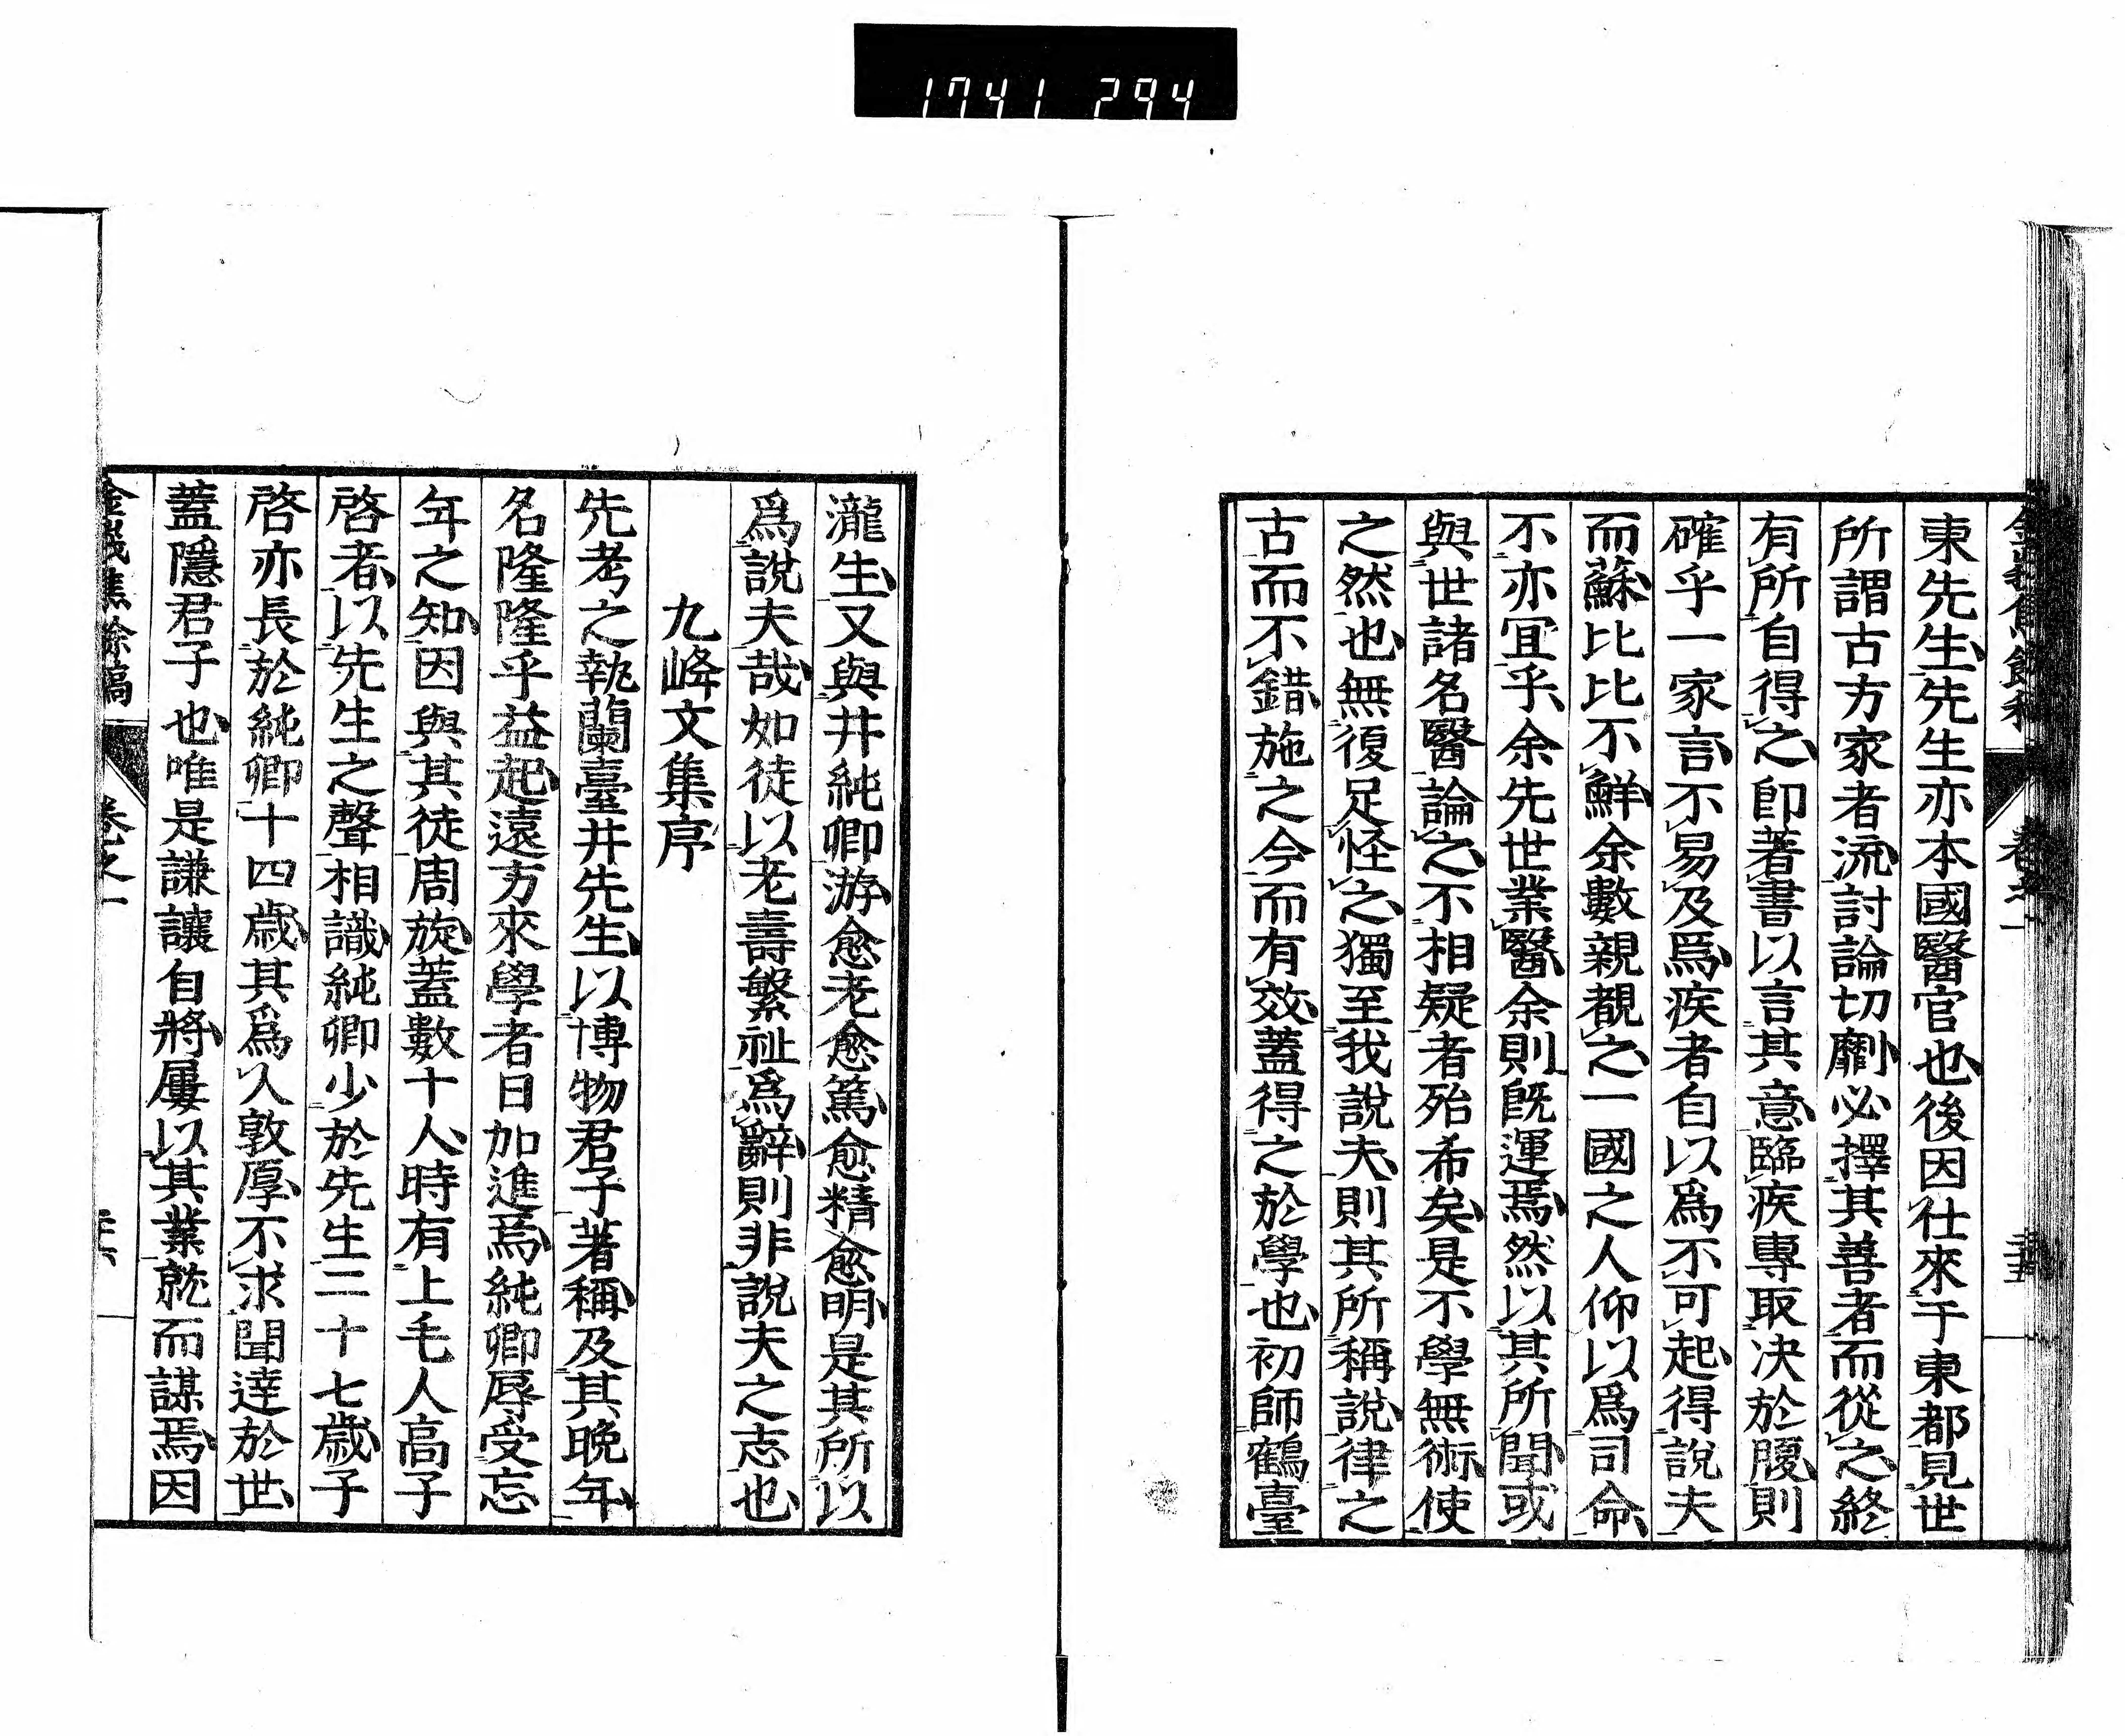 1741 294
東先生先生亦本國醫官也後因仕來于東都見世
所謂古方家者流討論切劘必擇其善者而從之終
有所自得之卽著書以言其意臨疾專取决於腹則
確乎一家言不易及爲疾者自以爲不可起得說夫
而蘇比比不鮮余數親覩之一國之人仰以爲司命
不亦冝乎余先世業醫余則旣運焉然以其所聞或
與世諸名醫論之不相疑者殆希矣是不學無術使
之然也無復足怪之獨至我說夫則其所稱說律之
古而不錯施之今而有效蓋得之於學也初師鶴臺
瀧生又與井純卿游愈老愈篤愈精愈明是其所以
爲說夫哉如徒以老壽繁祉爲辭則非說夫之志也
九峰文集序
先考之執蘭臺井先生以博物君子著稱及其晚年
名隆隆乎益起遠方來學者日加進焉純卿辱受忘
年之知因與其徒周旋蓋數十人時有上毛人高子
啓者以先生之聲相識純卿少於先生二十七歲子
啓亦長於純卿十四歲其爲人敦厚不求聞達於世
蓋隱君子也唯是謙讓自將屢以其業就而謀焉因
餘稿
卷之一